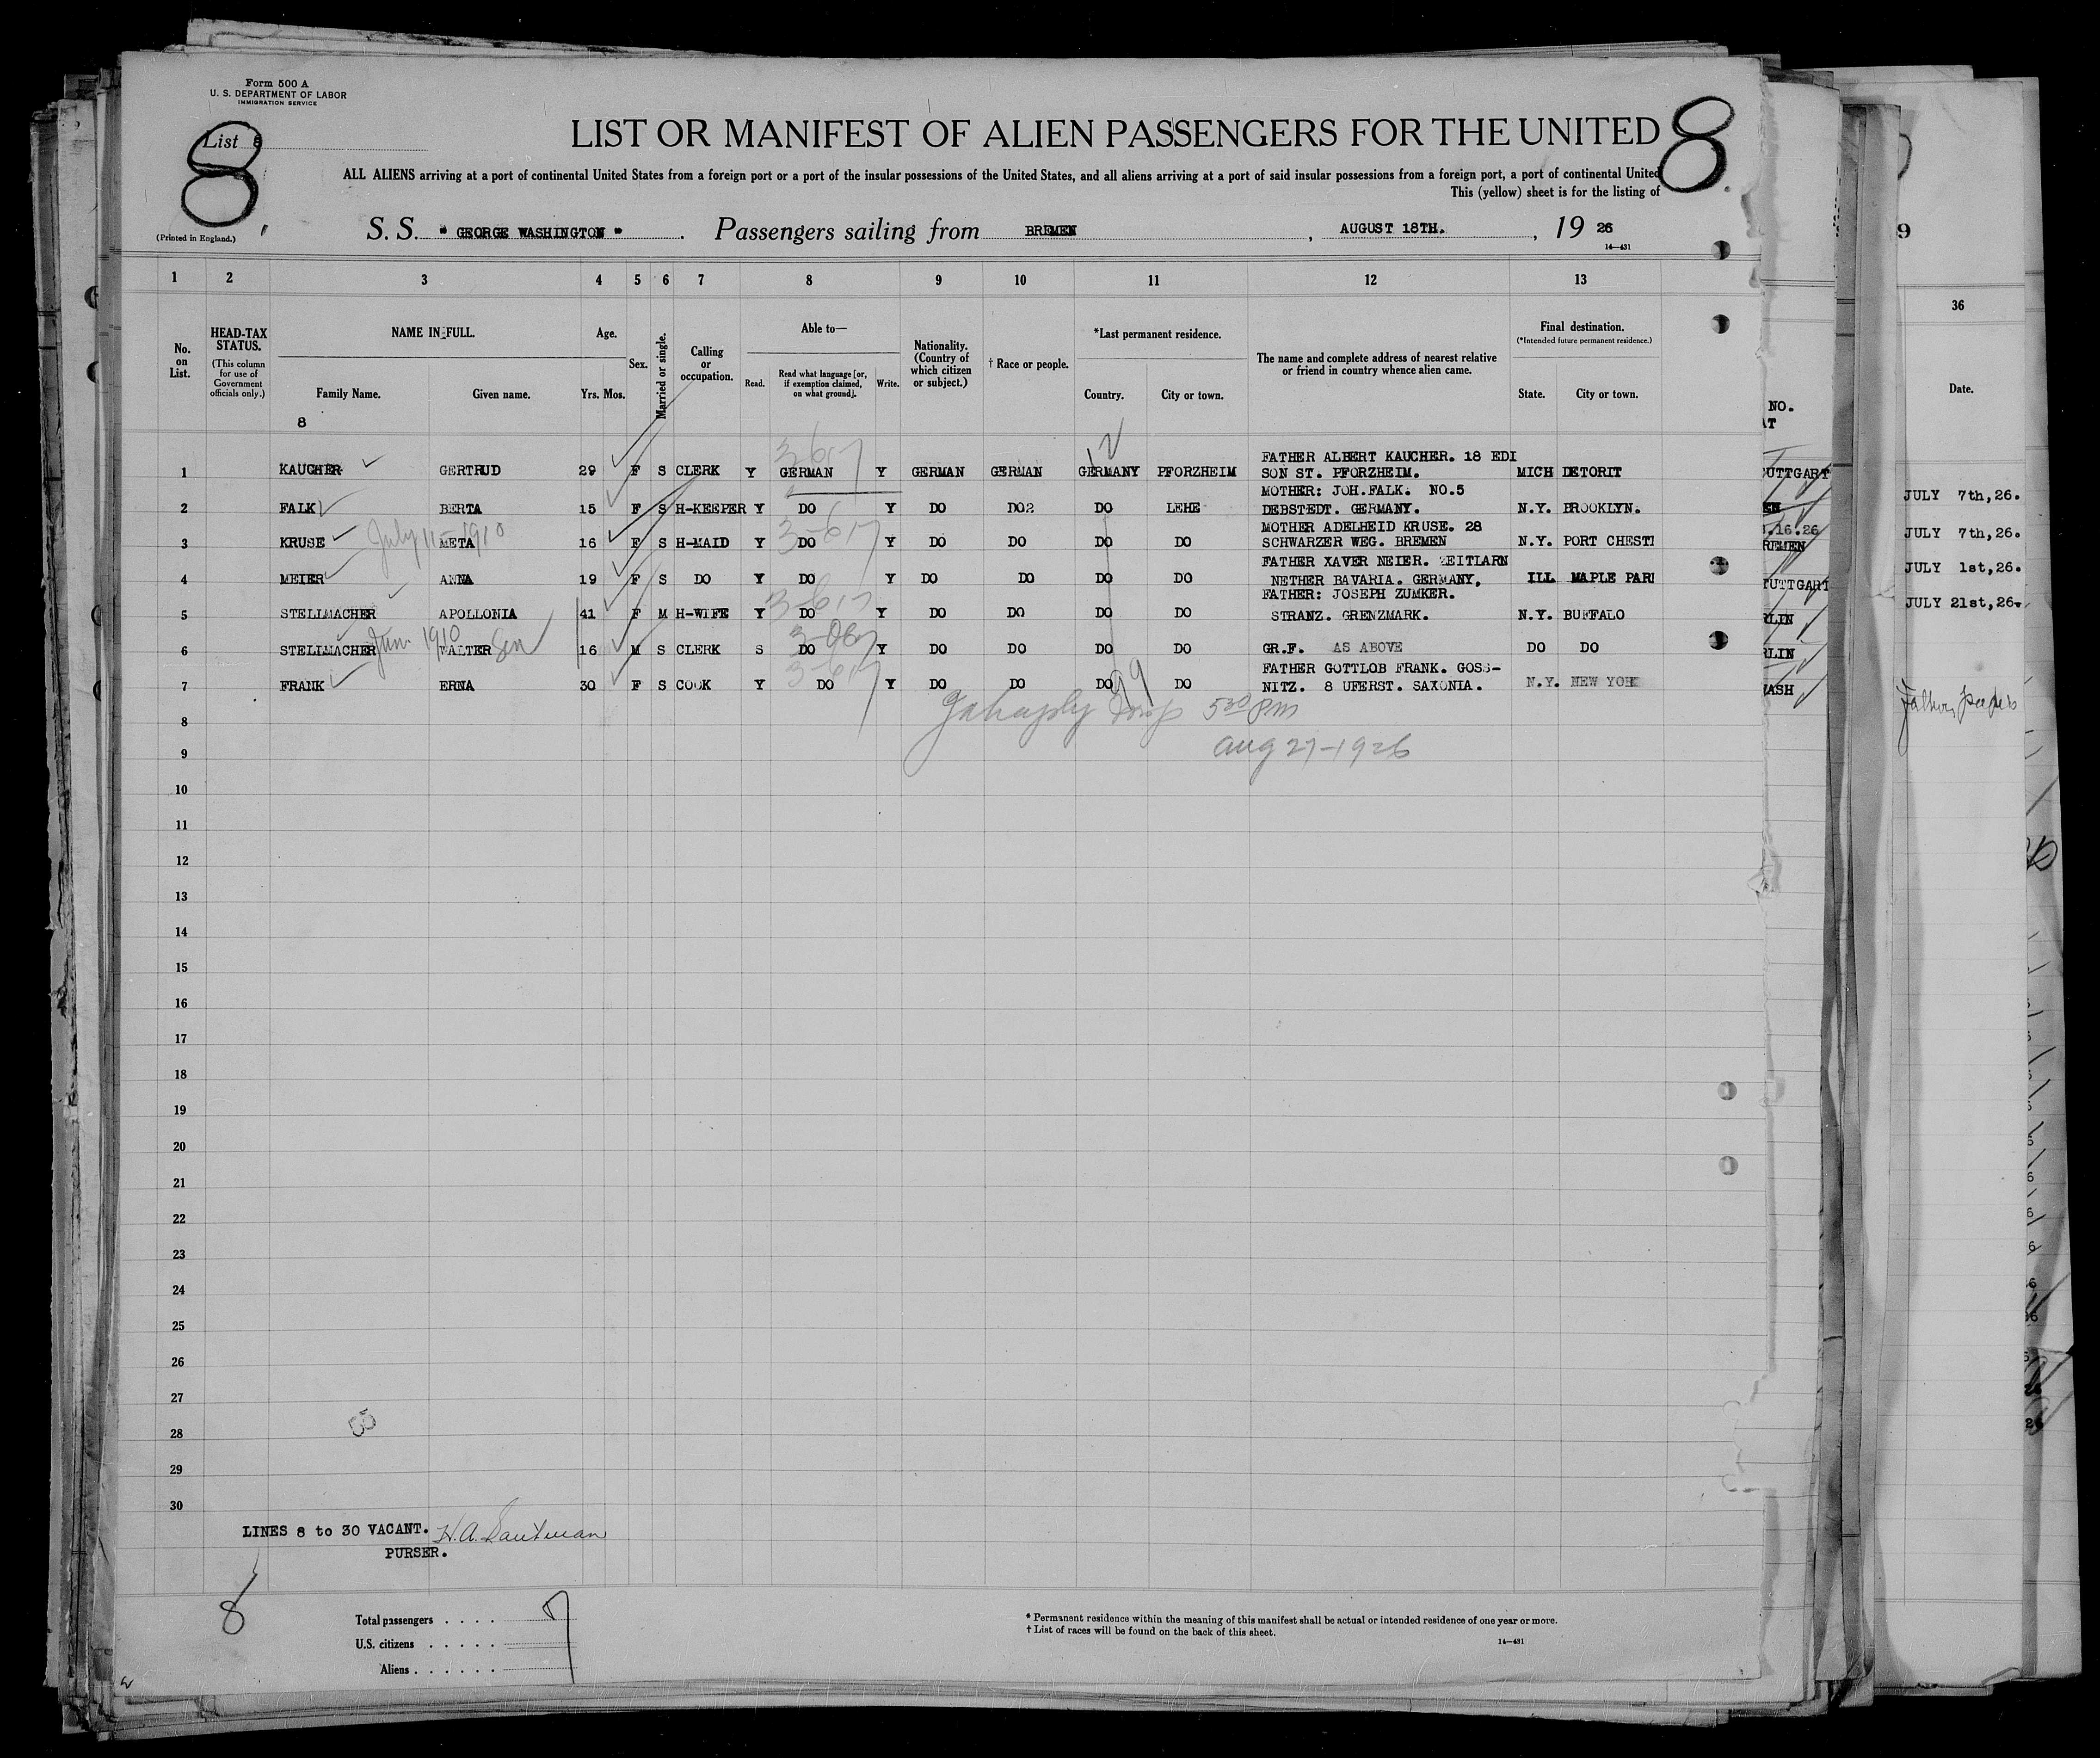 Form 500 A
U. S. DEPARTMENT OF LABOR
IMMIGRATION SERVICE
List 8
8
8
LIST OR MANIFEST OF ALIEN PASSENGERS FOR THE UNITED
ALL ALIENS arriving at a port of continental United States from a foreign port or a port of the insular possessions of the United States, and all aliens arriving at a port of said insular possessions from a foreign port, a port of continental United
This (yellow) sheet is for the listing of
(Printed in England.)
S. S. " GEORGE WASHINGTON " . Passengers sailing from BREMEN , AUGUST 18TH. , 19 26
14—431
9
1 2 3 4 5 6 7 8 9 10 11 12 13
36
No. on List.
HEAD-TAX STATUS.
(This column for use of Government officials only.)
NAME IN FULL.
Family Name. Given name.
8
Age.
Yrs. Mos.
Sex.
Married or single.
Calling or occupation.
Able to—
Read. Read what language [or, if exemption claimed, on what ground]. Write.
Nationality. (Country of which citizen or subject.)
† Race or people.
*Last permanent residence.
Country. City or town.
The name and complete address of nearest relative or friend in country whence alien came.
Final destination.
(*Intended future permanent residence.)
State. City or town.
NO.
AT
Date.
12
3-617
FATHER ALBERT KAUCHER. 18 EDI
1 KAUCHER GERTRUD 29 F S CLERK Y GERMAN Y GERMAN GERMAN GERMANY PFORZHEIM SON ST. PFORZHEIM. MICH DETORIT UTTGART
MOTHER: JOH.FALK. NO.5
JULY 7th,26.
2 FALK BERTA 15 F S H-KEEPER Y DO Y DO DO2 DO LEHE DEBSTEDT. GERMANY. N.Y. BROOKLYN. EN
July 11-1910
3-617
MOTHER ADELHEID KRUSE. 28
.16.26
JULY 7th,26.
3 KRUSE META 16 F S H-MAID Y DO Y DO DO DO DO SCHWARZER WEG. BREMEN N.Y. PORT CHEST REMEN
FATHER XAVER NEIER. ZEITLARN
JULY 1st,26.
4 MEIER ANNA 19 F S DO Y DO Y DO DO DO DO NETHER BAVARIA. GERMANY, ILL MAPLE PAR TUTTGART
3-617
FATHER: JOSEPH ZUMKER.
JULY 21st,26.
5 STELLMACHER APOLLONIA 41 F M H-WIFE Y DO Y DO DO DO DO STRANZ. GRENZMARK. N.Y. BUFFALO RLIN
1910
6 STELLMACHER WALTER Son 16 M S CLERK S DO Y DO DO DO DO GR.F. AS ABOVE DO DO RLIN
3-617
99
FATHER GOTTLOB FRANK. GOSS-
7 FRANK ERNA 30 F S COOK Y DO Y DO DO DO DO NITZ. 8 UFERST. SAXONIA. N.Y. NEW YOR WASH
8 530 pm
Aug 27-1926
9
10
11
12
13
14
15
16
17
18
19
20
21
22
23
24
25
26
27
28
29
30
LINES 8 to 30 VACANT.
PURSER.
8
Total passengers . . . . 7
U.S. citizens . . . . .
Aliens . . . . . .
* Permanent residence within the meaning of this manifest shall be actual or intended residence of one year or more.
† List of races will be found on the back of this sheet.
14—431